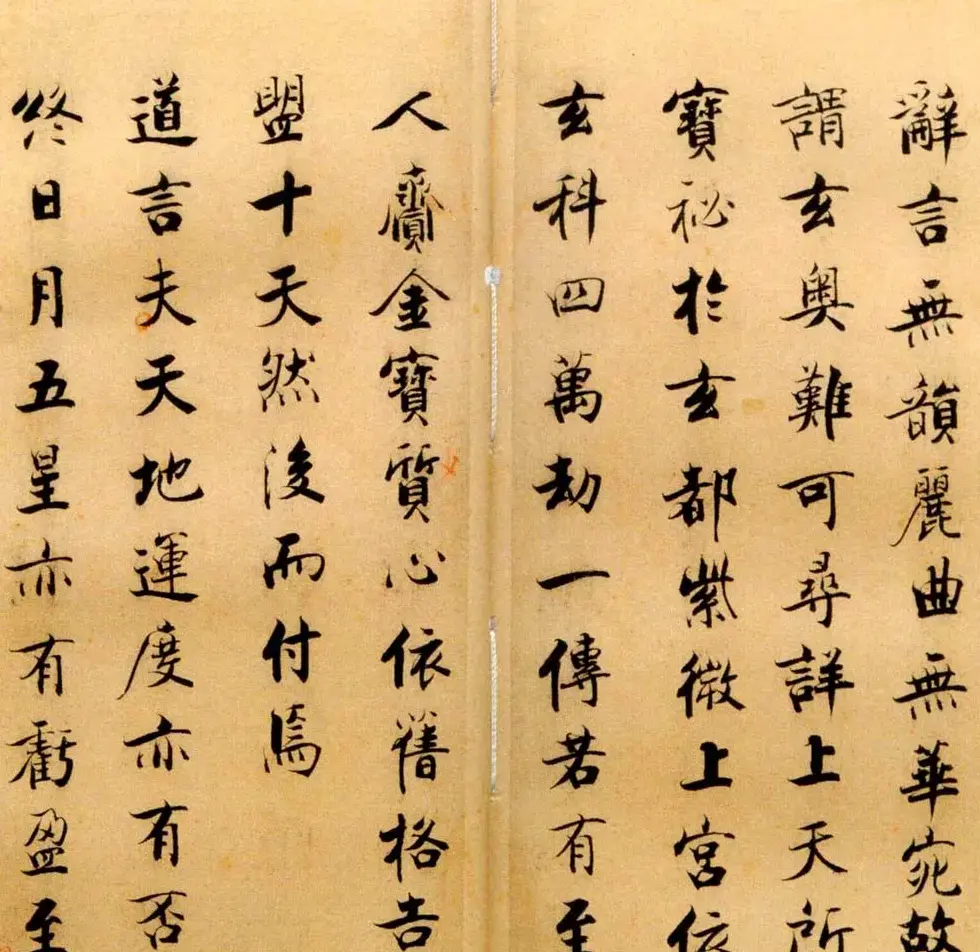 辭言無韻麗曲無華宛故
謂玄奧難可尋詳上天所
寶祕於玄都紫微上宮依
玄科四萬劫一傳若有至
人齎金寶質心依舊格告
盟十天然後而付焉
道言夫天地運度亦有否
終日月五星亦有虧盈至